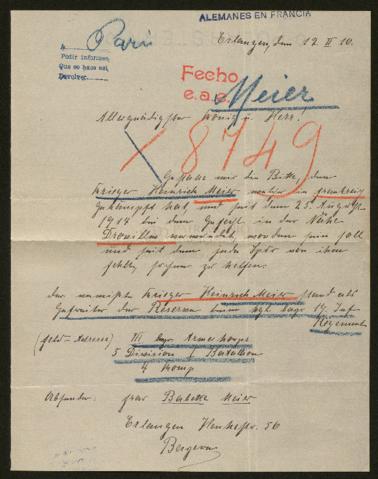 ALEMANES EN FRANCIA
A Paris
Pedir informes.
Que se hace así,
Devolver.
Erlangen, den 12. II 16.
Fecho
e.a.e.
Meier
Allergnädigster König u. Herr!
18749
Gestatte mir die Bitte, den
Krieger Heinrich Meier welcher in Frankreich
gekämpft hat und seit dem 25. August
1914 bei dem Gefecht in der Nähe
vermisst worden sein soll
und seit dem jede Spur von ihm
zu helfen.
Der vermisste Krieger Heinrich Meier stand als
Gefreiter der Reserve beim kgl. bayr. 19. Inf.
Regiment
(Feld-Adresse) III bayr. Armeekorps
5 Division I Bataillon
4 Komp
Absender: Frau Babette Meier
Erlangen 56
Bayern